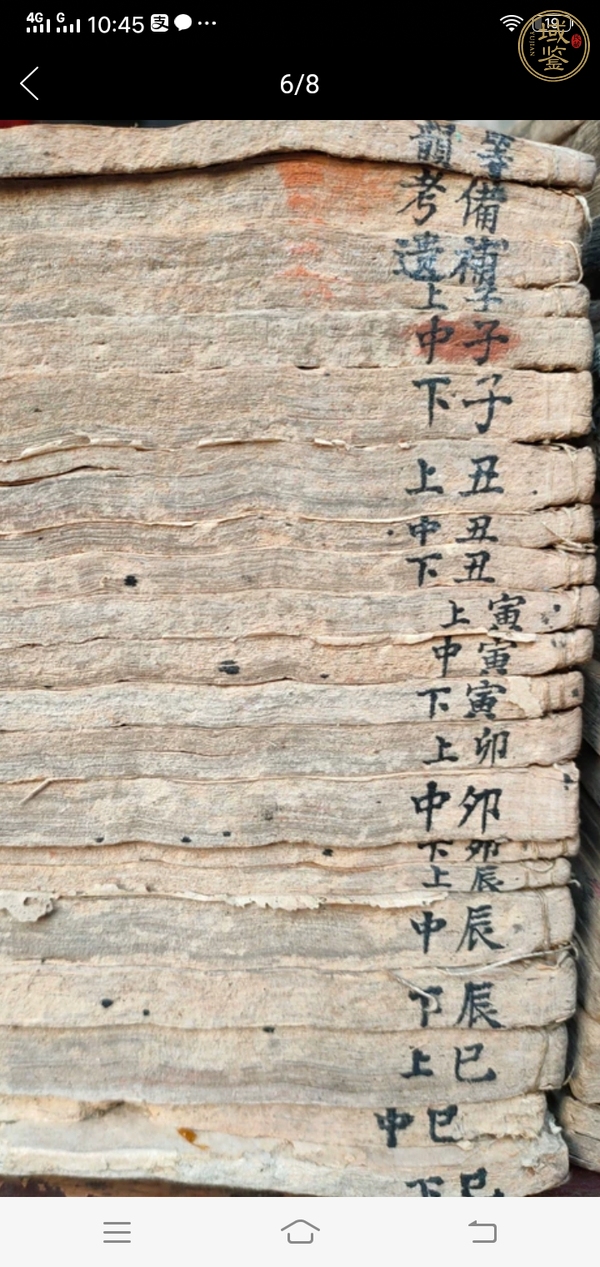 4G G 10:45 支 19
域鉴
YUJIAN
6/8
韻 等
考 備
遺 補
上 子
中 子
下 子
上 丑
中 丑
下 丑
上 寅
中 寅
下 寅
上 卯
中 卯
下 卯
上 辰
中 辰
下 辰
上 巳
中 巳
下 巳